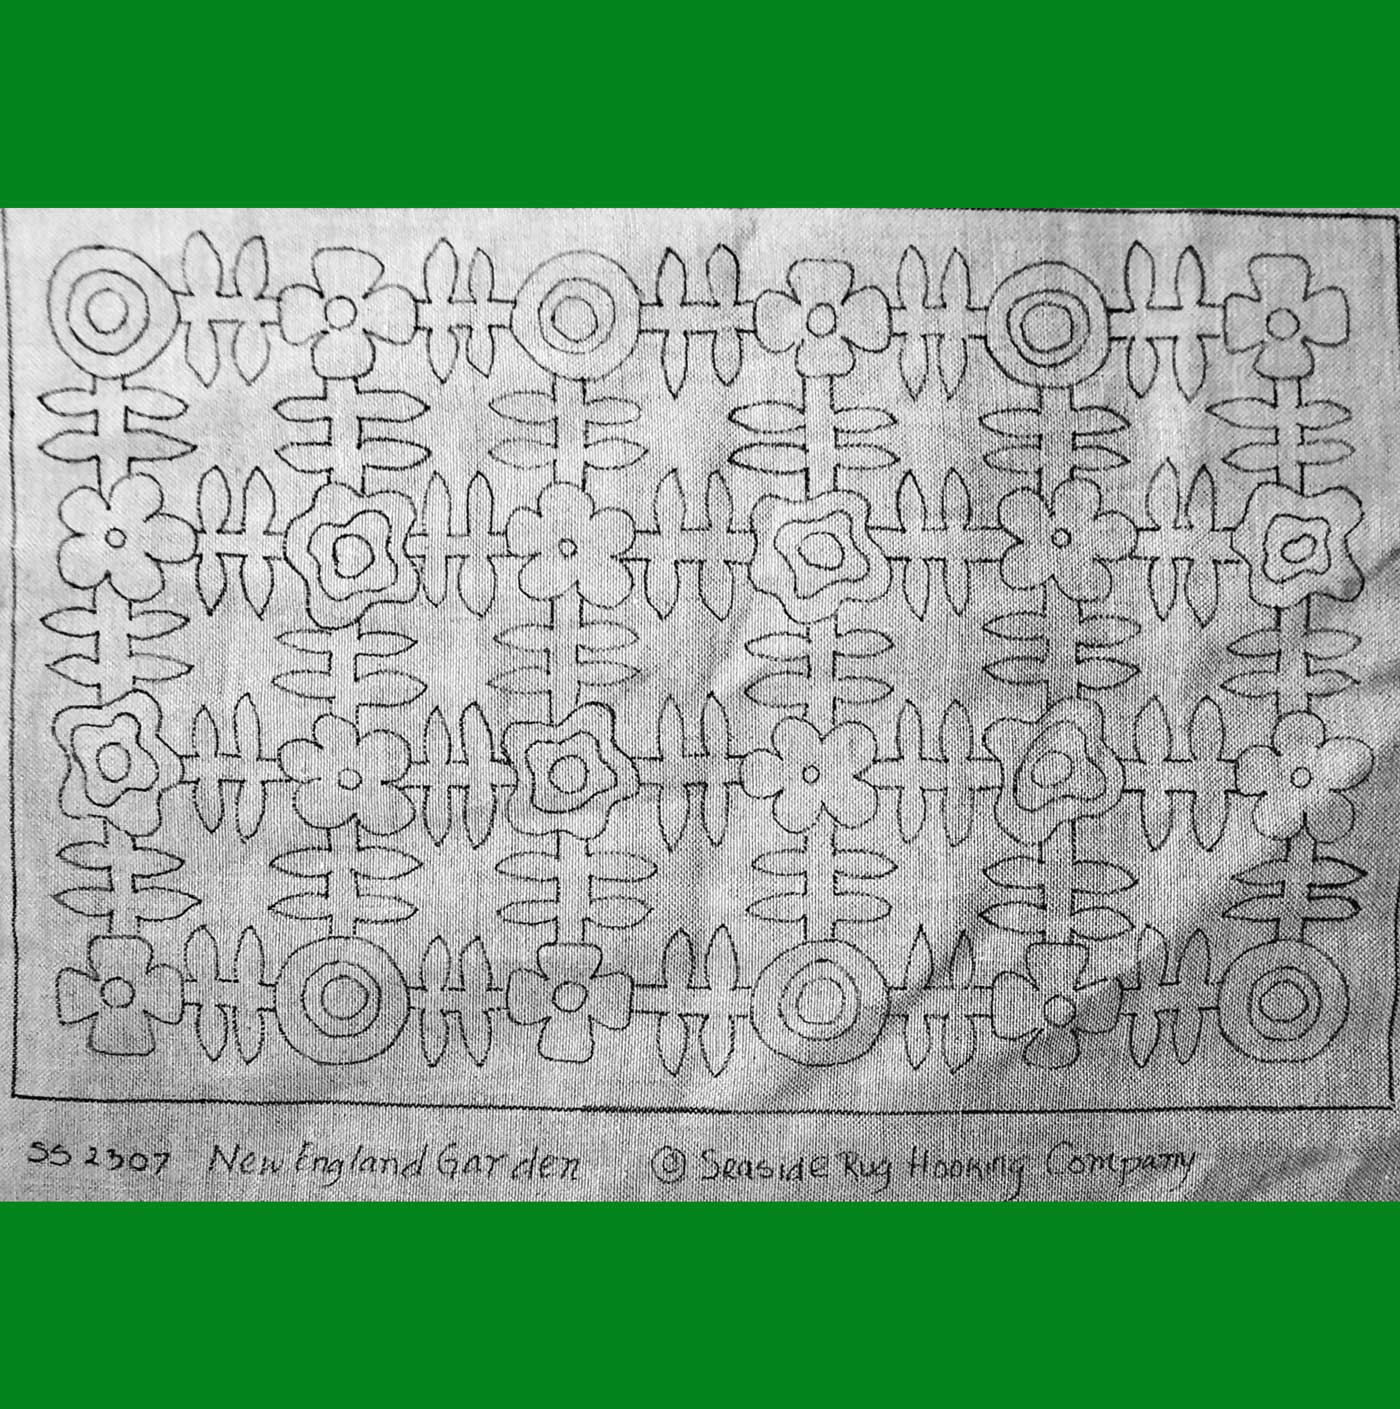 SS 2307 New England Garden © Seaside Rug Hooking Company